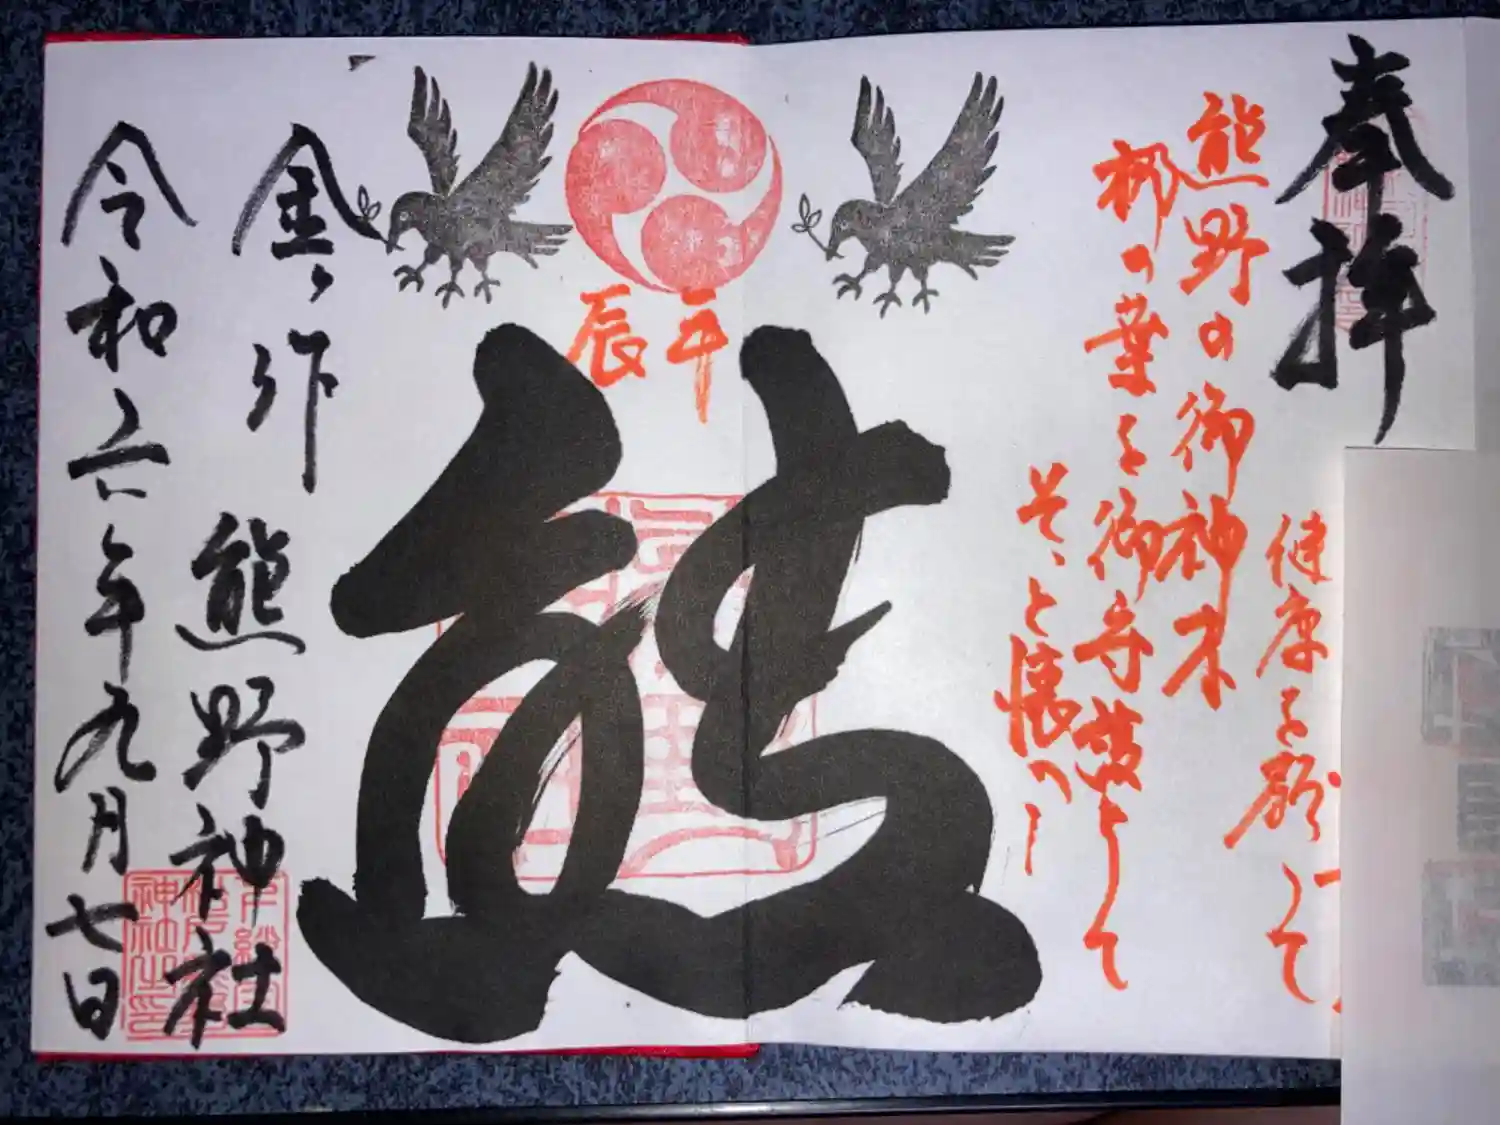 奉拝
健康を願って
熊野の御神木
梛の葉を御守護として
そっと懐へ
辰年
熊
金ヶ作 熊野神社
令和六年九月七日